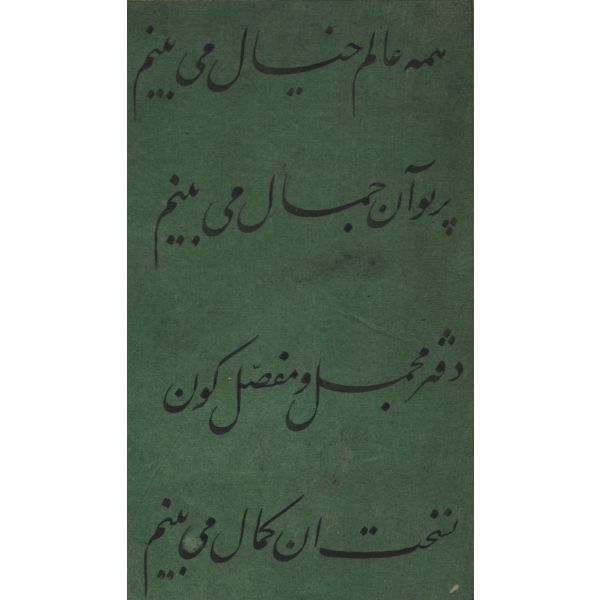 همه عالم خیال می بینم
پرتو آن جمال می بینم
دفتر مجمل و مفصّل کون
نسخت ان کمال می بینم